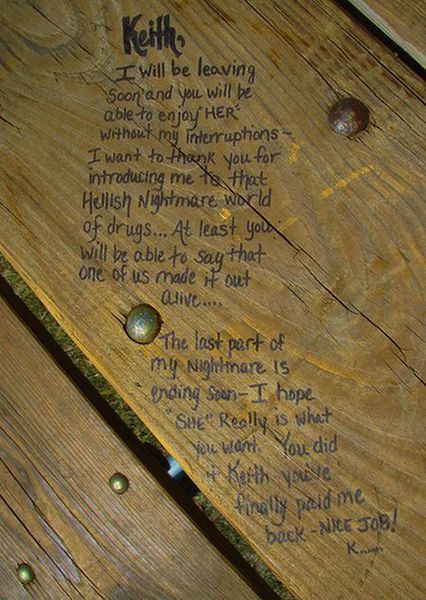 Keith,
I will be leaving
soon and you will be
able to enjoy "HER"
without my interruptions -
I want to thank you for
introducing me to that
Hellish Nightmare world
of drugs... At least you
will be able to say that
one of us made it out
alive....
The last part of
my Nightmare is
ending soon - I hope
"SHE" Really is what
you want. You did
it Keith you've
finally paid me
back - NICE JOB!
K......